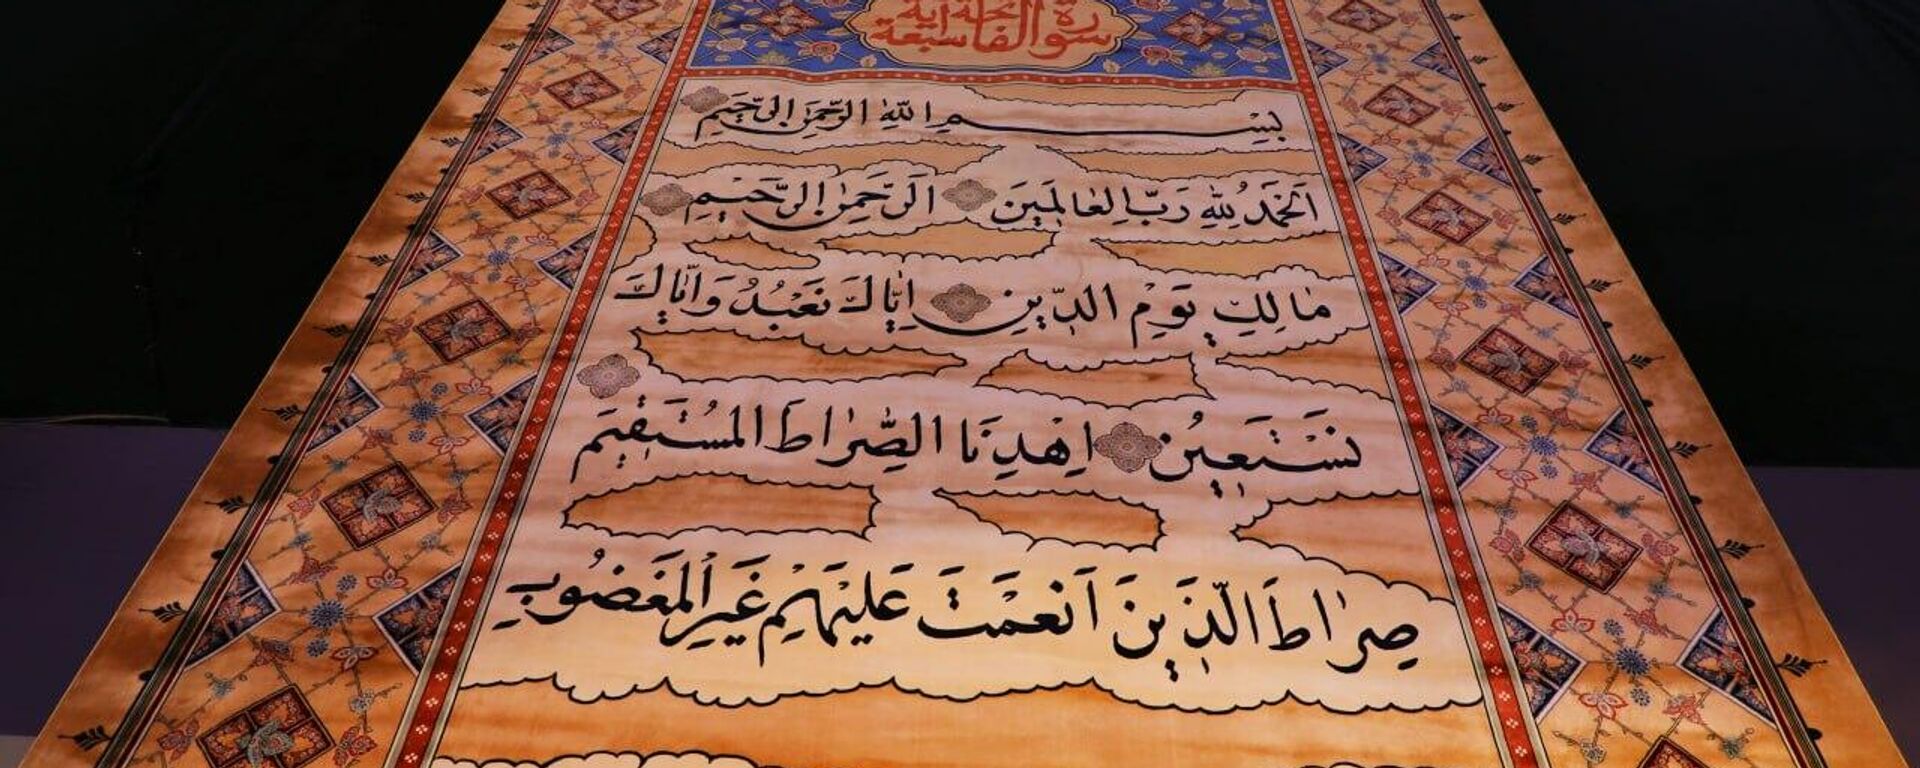 سورة الفاتحة سبعة آية
بِسْمِ اللّٰهِ الرَّحْمٰنِ الرَّحِيمِ
اَلْحَمْدُ لِلّٰهِ رَبِّ الْعَالَمِينَ اَلرَّحْمٰنِ الرَّحِيمِ
مَالِكِ يَوْمِ الدِّينِ اِيَّاكَ نَعْبُدُ وَاِيَّاكَ
نَسْتَعِينُ اِهْدِنَا الصِّرَاطَ الْمُسْتَقِيمَ
صِرَاطَ الَّذِينَ اَنْعَمْتَ عَلَيْهِمْ غَيْرِ الْمَغْضُوبِ